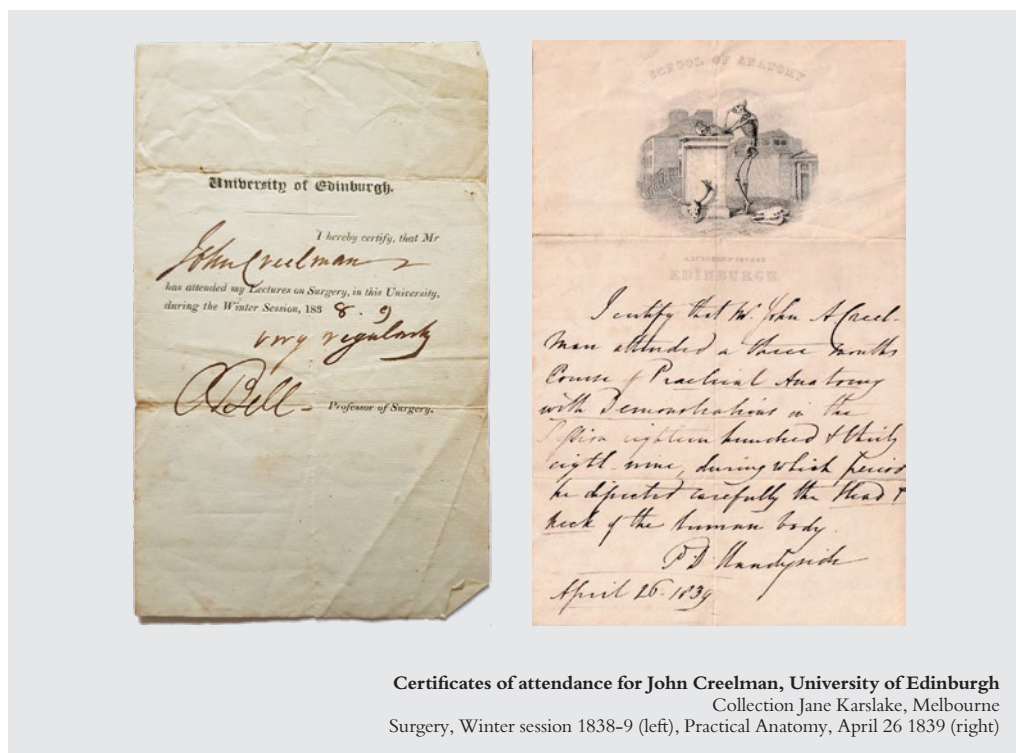 University of Edinburgh.
I hereby certify, that Mr
John Creelman
has attended my Lectures on Surgery, in this University,
during the Winter Session, 1838.9
very regularly
C Bell Professor of Surgery.
SCHOOL OF ANATOMY
EDINBURGH
I certify that Mr. John A Creel-
man attended a three months
Course of Practical Anatomy
with Demonstrations in the
Session eighteen hundred & thirty
eight-nine, during which period
he dissected carefully the Head &
neck of the human body.
P. D. Handyside
April 26. 1839
Certificates of attendance for John Creelman, University of Edinburgh
Collection Jane Karslake, Melbourne
Surgery, Winter session 1838-9 (left), Practical Anatomy, April 26 1839 (right)